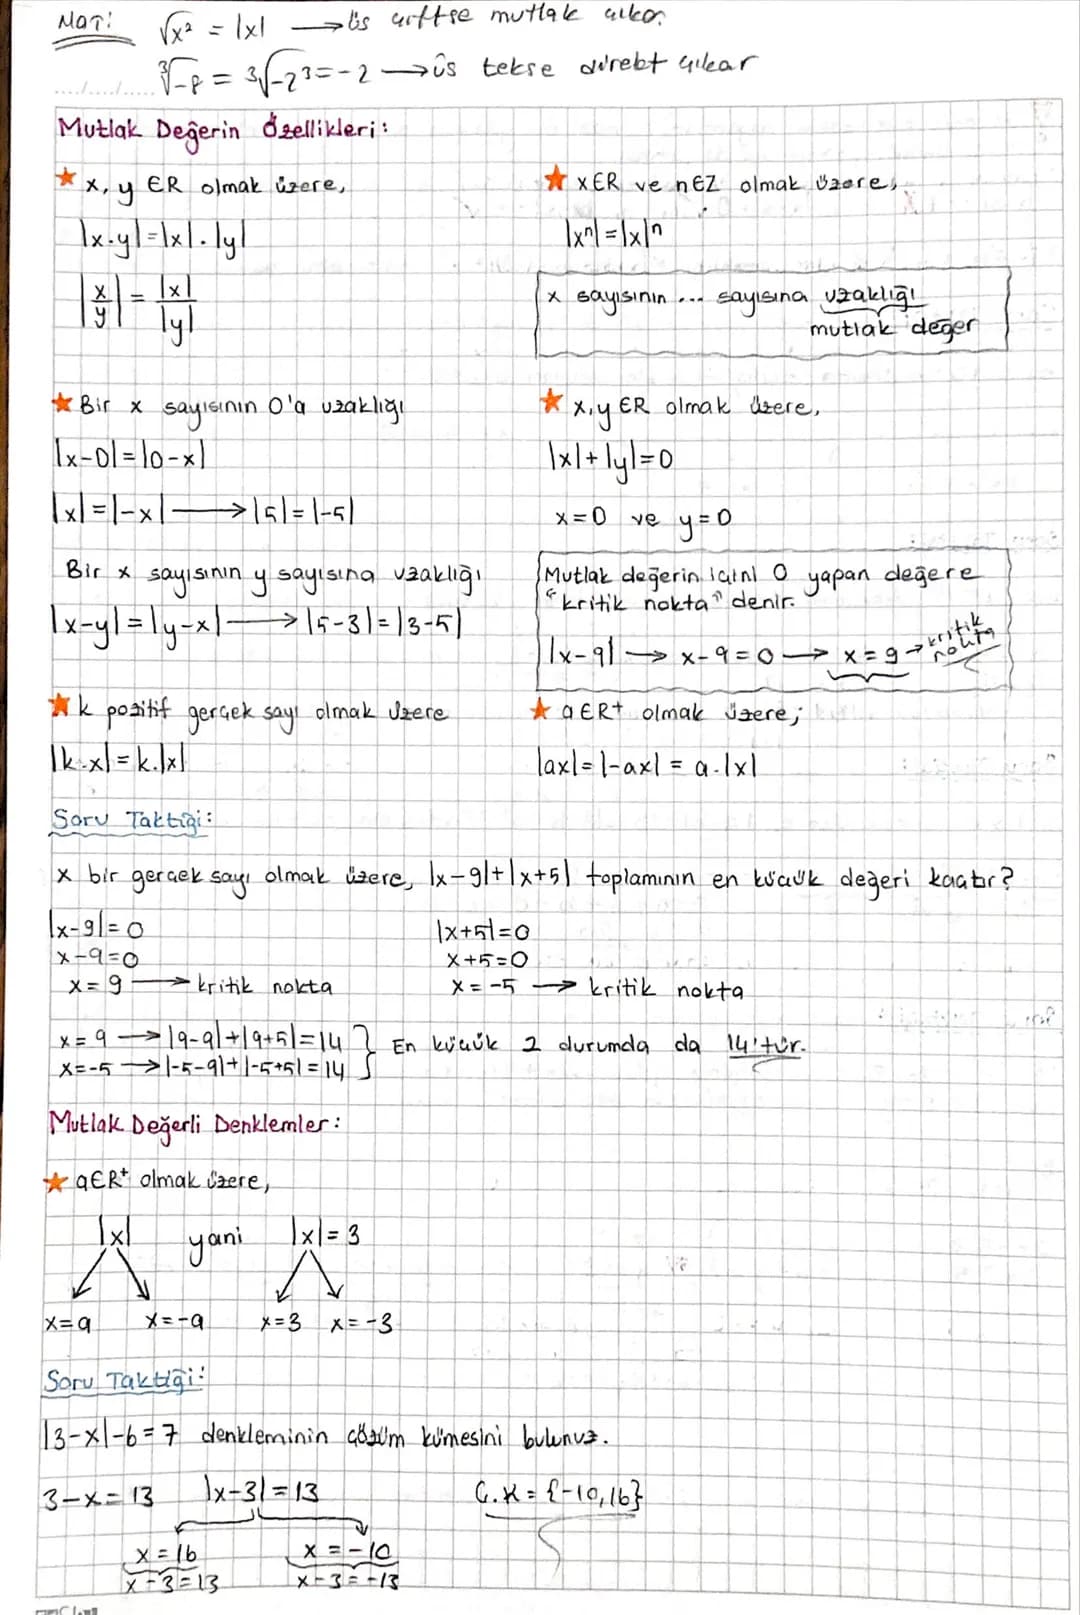 MAT: √x² = |x| → üs çiftse mutlak çıkar.
³√-8 = ³√-2³ = -2 → üs tekse direkt çıkar
Mutlak Değerin Özellikleri:
★ x, y ∈R olmak üzere,
|x.y|=|x|.|y|
|x/y| = |x|/|y|
★ x∈R ve n∈Z olmak üzere,
|xⁿ|=|x|ⁿ
x sayısının ... sayısına uzaklığı
mutlak değer
★ Bir x sayısının 0'a uzaklığı
|x-0|=|0-x|
|x|=|-x| → |5|=|-5|
Bir x sayısının y sayısına uzaklığı
|x-y|=|y-x| → |5-3|=|3-5|
★ x,y ∈R olmak üzere,
|x|+|y|=0
x=0 ve y=0
Mutlak değerin içini 0 yapan değere
"kritik nokta" denir.
|x-9| → x-9=0 → x=9 → kritik nokta
★ k pozitif gerçek sayı olmak üzere
|k.x|=k.|x|
★ a∈R+ olmak üzere;
|ax|=|-ax| = a.|x|
Soru Taktiği:
x bir gerçek sayı olmak üzere, |x-9|+|x+5| toplamının en küçük değeri kaçtır?
|x-9|=0
x-9=0
x=9 → kritik nokta
|x+5|=0
x+5=0
x=-5 → kritik nokta
x=9 → |9-9|+|9+5|=14
x=-5 → |-5-9|+|-5+5|=14
} En küçük 2 durumda da 14'tür.
Mutlak Değerli Denklemler:
★ a∈R+ olmak üzere,
|x| yani |x|=3
x=a x=-a x=3 x=-3
Soru Taktiği:
|3-x|-6=7 denkleminin çözüm kümesini bulunuz.
3-x=13 |x-3|=13 Ç.K={-10,16}
x=16 x=-10
x-3=13 x-3=-13